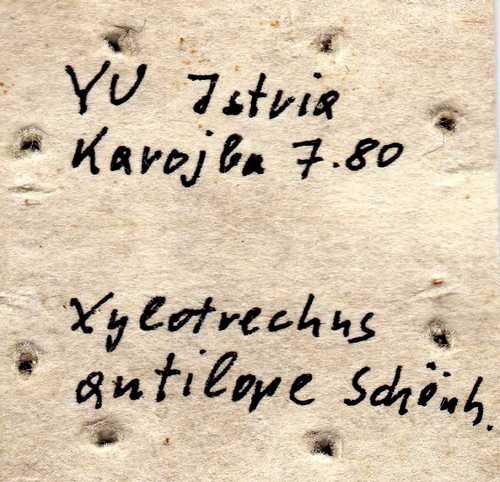 YU Istria
Karojba 7.80
Xylotrechus
antilope Schönh.